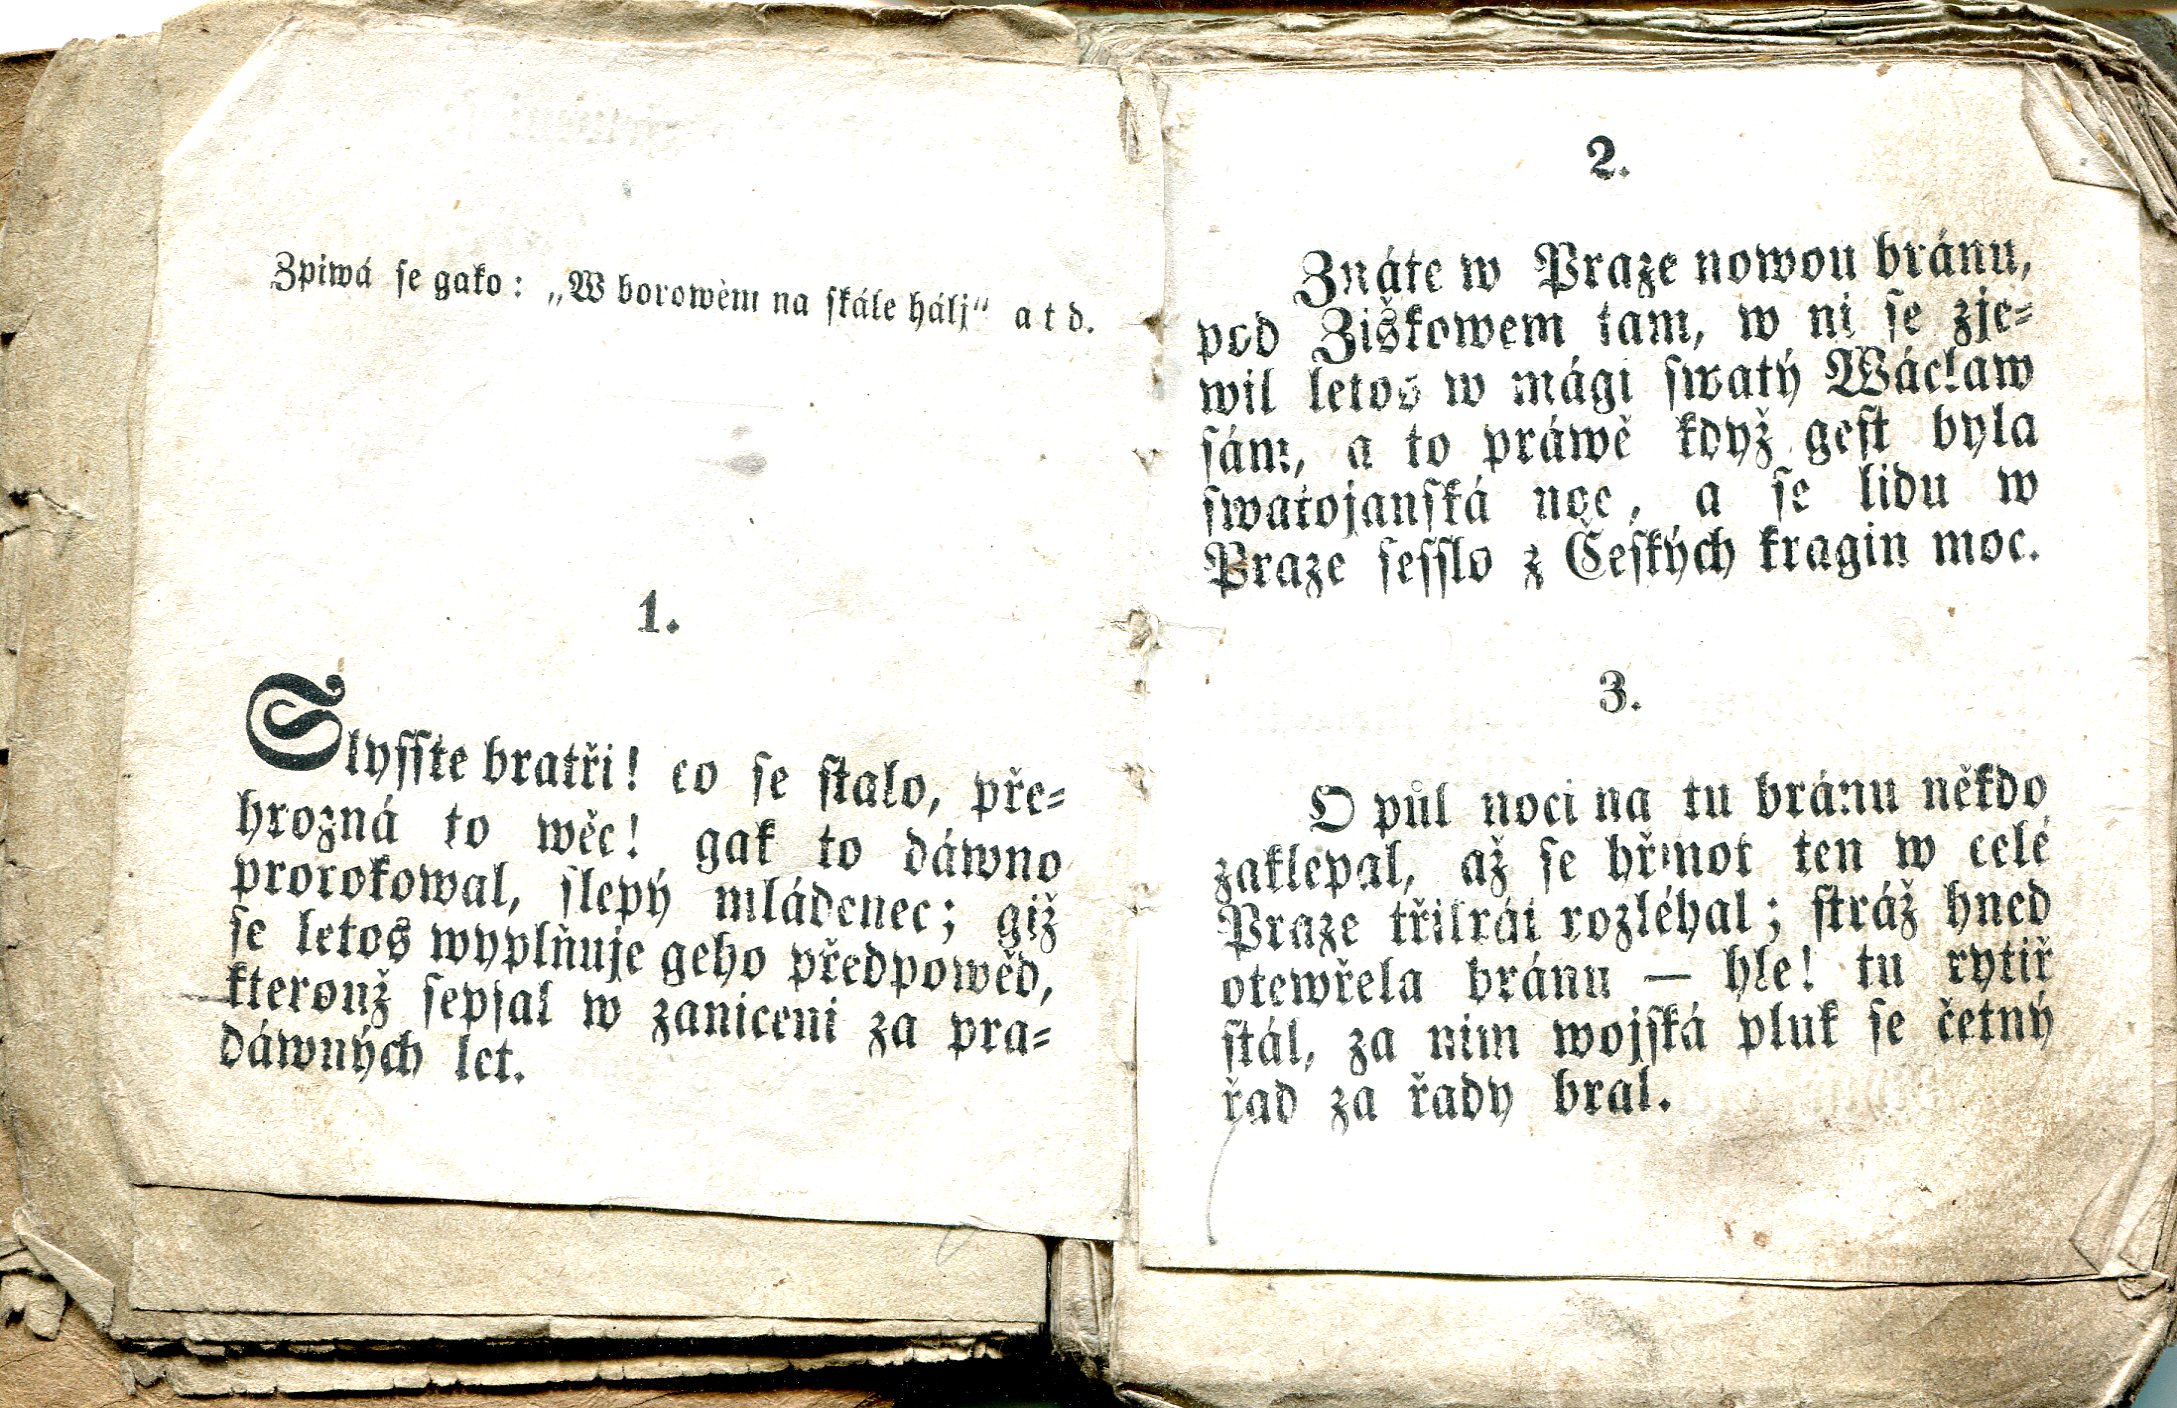 Zpiwá se gako: „W borowèm na skále hálj“ a t d.
1.
Slysste bratři! co se stalo, pře-
hrozná to wěc! gak to dáwno
prorokowal, slepý mládenec; giž
se letos wyplňuje geho předpowěd,
kterouž sepsal w zaniceni za pra-
dáwných let.
2.
Znáte w Praze nowou bránu,
pod Žiškowem tam, w ni se zje-
wil letos w mági swatý Wáclaw
sám, a to práwě když gest byla
swatojanská noc, a se lidu w
Praze sesslo z Českých kragin moc.
3.
O půl noci na tu bránu někdo
zaklepal, až se hřmot ten w celé
Praze třikrát rozléhal; stráž hned
otewřela bránu — hle! tu rytiř
stál, za nim wojská pluk se četný
řad za řady bral.